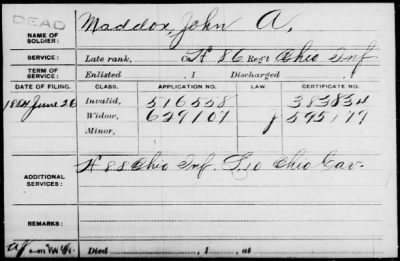 DEAD
NAME OF SOLDIER: Maddox, John A.
SERVICE: Late rank, Co. H 86 Reg't Ohio Inf
TERM OF SERVICE: Enlisted , 1 Discharged , 1
DATE OF FILING. CLASS. APPLICATION NO. LAW. CERTIFICATE NO.
1884 June 26 Invalid, 516558 383834
Widow, 629107 595179
Minor,
ADDITIONAL SERVICES: H 88 Ohio Inf. L 10 Ohio Cav.
REMARKS:
Died , 1 , at